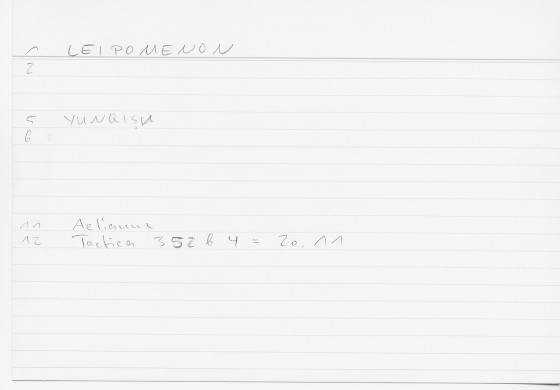 1 LEIPOMENON
2
5
6
11 Aelianus
12 Tactica 352 b 4 = 20. 11